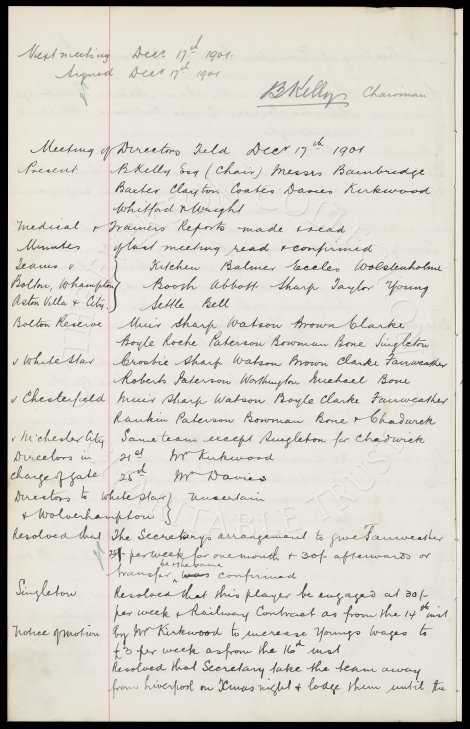 Next meeting Decr 17th 1901.
Signed Decr 17th 1901
B Kelly Chairman
Meeting of Directors held Decr 17th 1901
Present B Kelly Esq (Chair) Messrs Bainbridge
Baxter Clayton Coates Davies Kirkwood
Whitford & Wright
Medical & Trainers Reports made & read
Minutes of last meeting read & confirmed
Teams v Kitchen Balmer Eccles Wolstenholme
Bolton, Whampton Booth Abbott Sharp Taylor Young
Aston Villa & City. Settle Bell
Bolton Reserve Muir Sharp Watson Brown Clarke
Boyle Roche Paterson Bowman Bone Singleton
v White Star Crosbie Sharp Watson Brown Clarke Fairweather
Roberts Paterson Worthington Michael Bone
v Chesterfield Muir Sharp Watson Boyle Clarke Fairweather
Rankin Paterson Bowman Bone & Chadwick
v M'chester City Same team except Singleton for Chadwick
Directors in 21st Mr Kirkwood
charge of gate 25th Mr Davies
Directors to White Star uncertain
& Wolverhampton
Resolved that The Secretarys arrangement to give Fairweather
per week for one month & 30/- afterwards or
transfer be the same confirmed
Singleton Resolved that this player be engaged at 30/-
per week & Railway Contract as from the 14th inst
Notice of motion by Mr Kirkwood to increase Youngs wages to
£3 per week as from the 16th inst
Resolved that Secretary take the team away
from Liverpool on Xmas night & lodge them until the